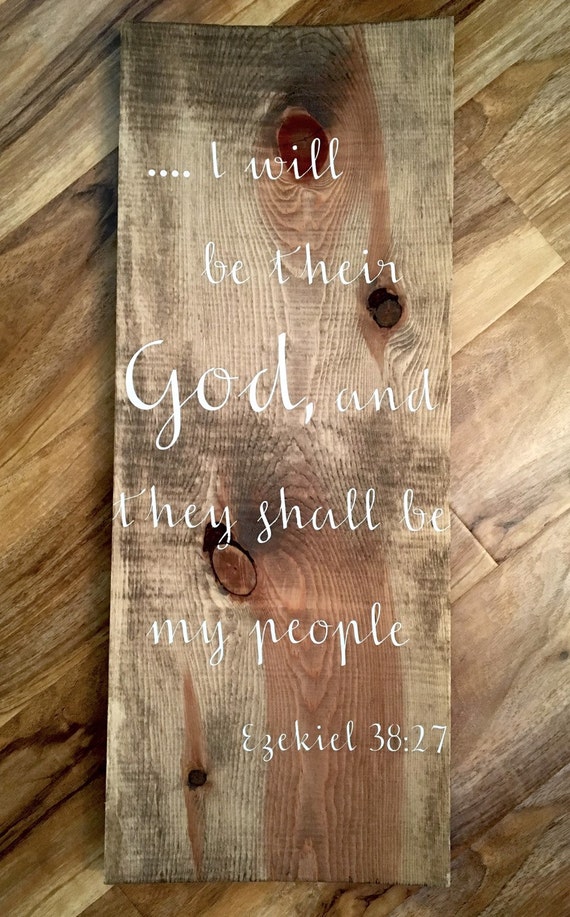 .... I will
be their
God, and
they shall be
my people
Ezekiel 38:27